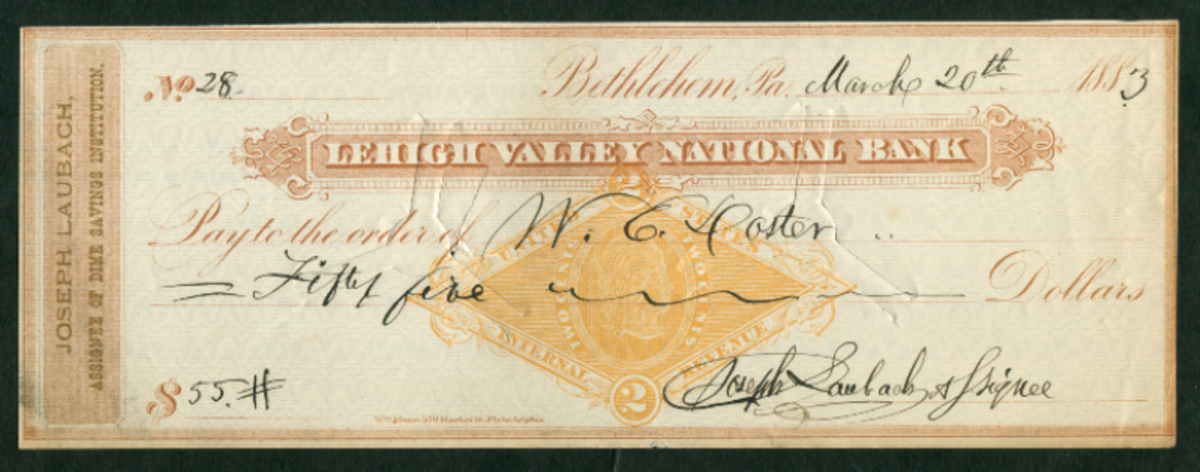 JOSEPH LAUBACH,
ASSIGNEE OF DIME SAVINGS INSTITUTION.
No 28.
Bethlehem, Pa. March 20th 1883
LEHIGH VALLEY NATIONAL BANK
Pay to the order of W. E. Hoster
Fifty five Dollars
UNITED STATES
TWO CENTS
INTERNAL REVENUE
2
2
$ 55.#
Joseph Laubach Assignee